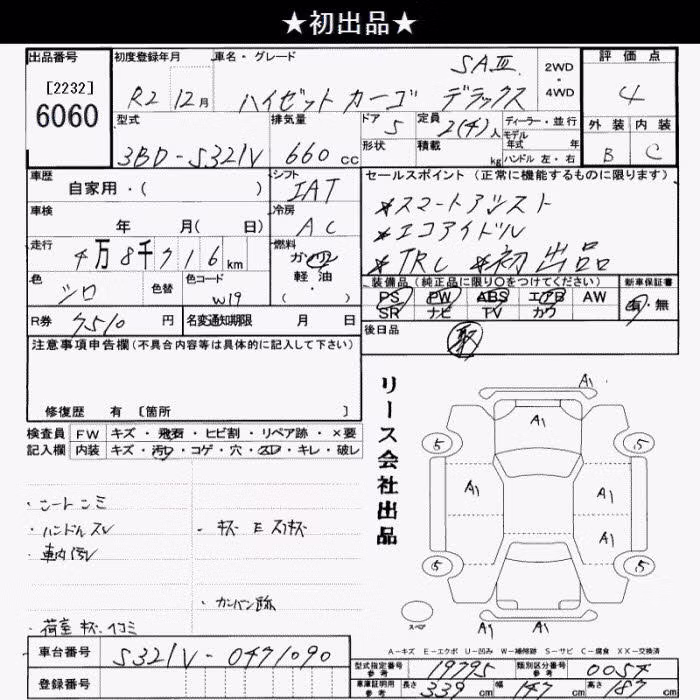 ★初出品★
出品番号
[2232]
6060
初度登録年月
R2 12月
車名・グレード
SAⅢ
ハイゼット カーゴ デラックス
2WD
・
4WD
評価点
4
外装 内装
B C
型式
3BD-S321V
排気量
660 cc
ドア 5
定員 2(4)人
ディーラー・並行
モデル
年式 年
形状
積載 kg
ハンドル 左・右
車歴
自家用・( )
シフト
IAT
車検
年 月( 日)
冷房
AC
走行
4万8千716km
燃料
ガソリン
軽油
( )
色
シロ
色替
色コード
W19
R券 7510 円
名変通知期限 月 日
セールスポイント(正常に機能するものに限ります)
*スマートアシスト
*エコアイドル
*TRC *初出品
装備品(純正品に限り○をつけてください)
PS PW ABS エアB AW
SR ナビ TV カワ
新車保証書
有・無
後日品
取
注意事項申告欄(不具合内容等は具体的に記入して下さい)
修復歴 有 〔箇所 〕
検査員
記入欄
FW キズ・飛石・ヒビ割・リペア跡・×要
内装 キズ・汚れ・コゲ・穴・スレ・キレ・破レ
・シート シミ
・ハンドル スレ
・車内 汚レ
・キズ E スリキズ
・カンバン跡
・荷室 キズ・ヘコミ
リース会社出品
A1
A1
5
5
A1
A1
A1
5
5
A1
A1
スペア
A-キズ E-エクボ U-凹み W-補修跡 S-サビ C-腐食 XX-交換済
車台番号 S321V-0471090
登録番号
型式指定番号
参考
19795
類別区分番号
参考
0054
車庫証明用
参考
長さ 339 cm 幅 147 cm 高さ 187 cm